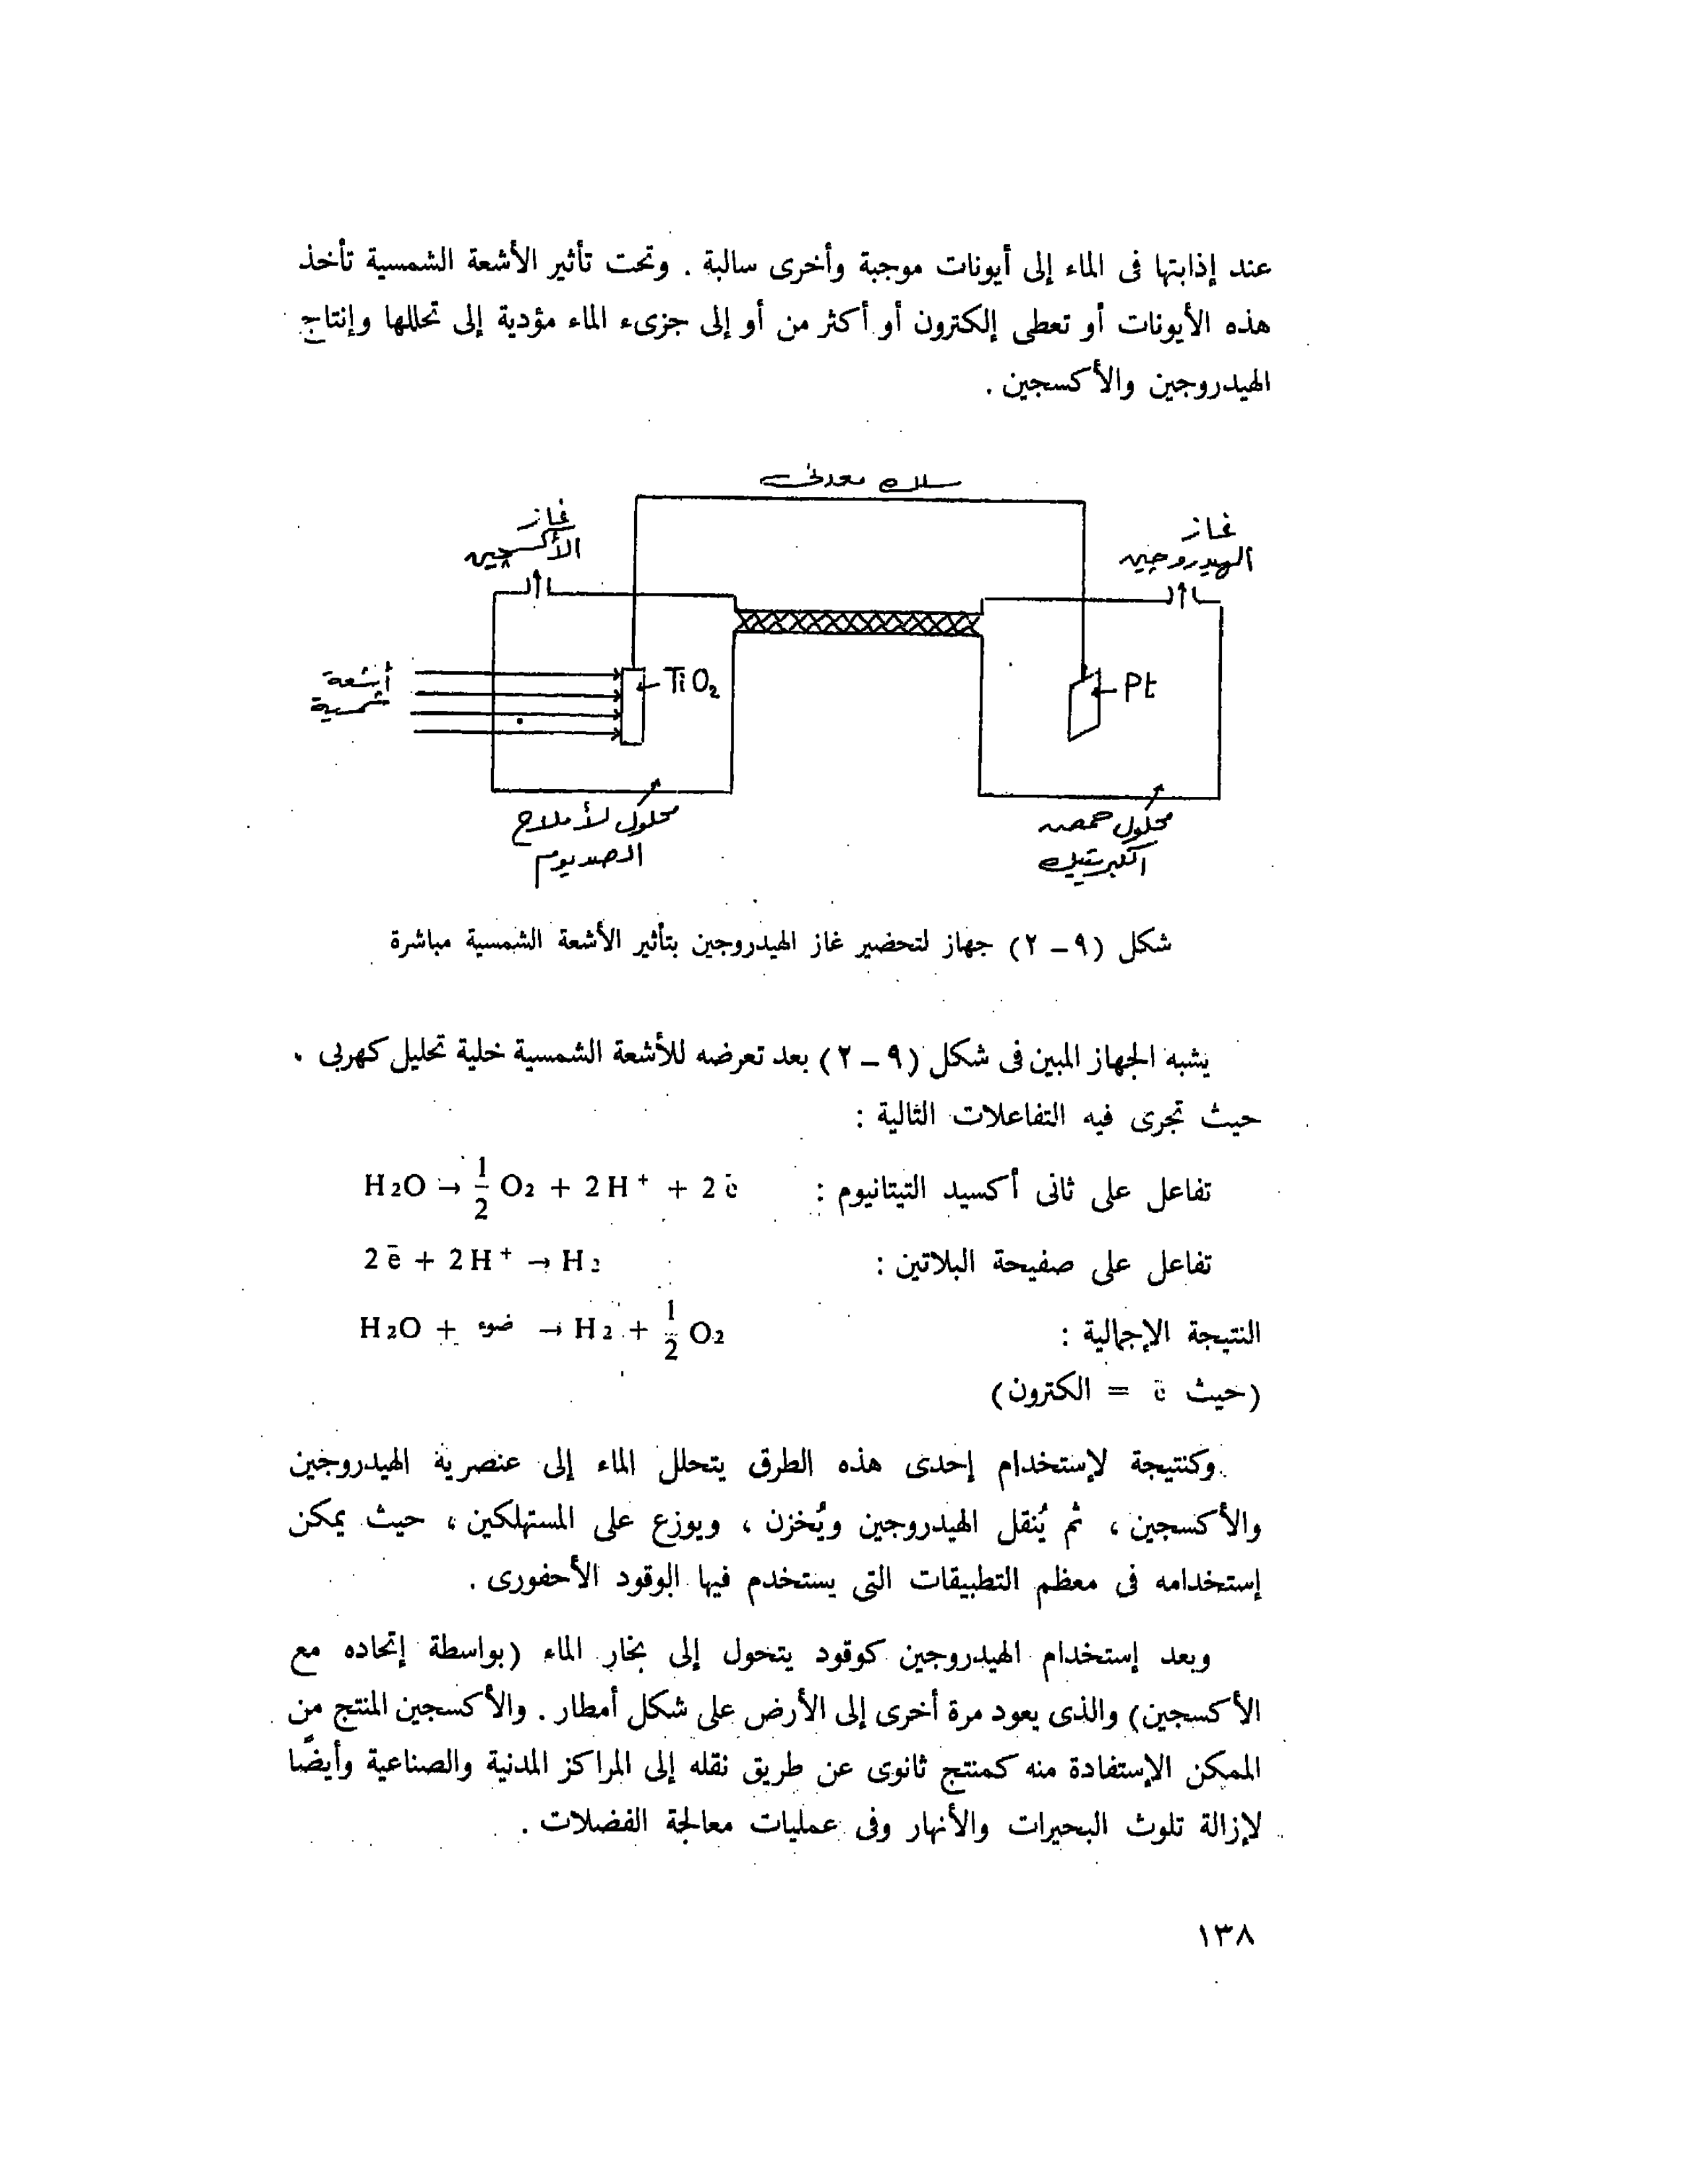 عند إذابتها فى الماء إلى أيونات موجبة وأخرى سالبة . وتحت تأثير الأشعة الشمسية تأخذ
هذه الأيونات أو تعطى إلكترون أو أكثر من أو إلى جزىء الماء مؤدية إلى تحللها وإنتاج
الهيدروجين والأكسجين .
سلك معدنى
غاز
الأكسجين
غاز
الهيدروجين
أشعة
شمسية
TiO₂
Pt
محلول لأملاح
الصديوم
محلول حمض
الكبريتيك
شكل (٩ – ٢) جهاز لتحضير غاز الهيدروجين بتأثير الأشعة الشمسية مباشرة
يشبه الجهاز المبين فى شكل (٩ – ٢) بعد تعرضه للأشعة الشمسية خلية تحليل كهربى ،
حيث تجرى فيه التفاعلات التالية :
تفاعل على ثانى أكسيد التيتانيوم : H₂O → 1/2 O₂ + 2H⁺ + 2ē
تفاعل على صفيحة البلاتين : 2ē + 2H⁺ → H₂
النتيجة الإجمالية : H₂O + ضوء → H₂ + 1/2 O₂
(حيث ē = الكترون)
وكنتيجة لإستخدام إحدى هذه الطرق يتحلل الماء إلى عنصرية الهيدروجين
والأكسجين ، ثم يُنقل الهيدروجين ويُخزن ، ويوزع على المستهلكين ، حيث يمكن
إستخدامه فى معظم التطبيقات التى يستخدم فيها الوقود الأحفورى .
وبعد إستخدام الهيدروجين كوقود يتحول إلى بخار الماء (بواسطة إتحاده مع
الأكسجين) والذى يعود مرة أخرى إلى الأرض على شكل أمطار . والأكسجين المنتج من
الممكن الإستفادة منه كمنتج ثانوى عن طريق نقله إلى المراكز المدنية والصناعية وأيضًا
لإزالة تلوث البحيرات والأنهار وفى عمليات معالجة الفضلات .
١٣٨